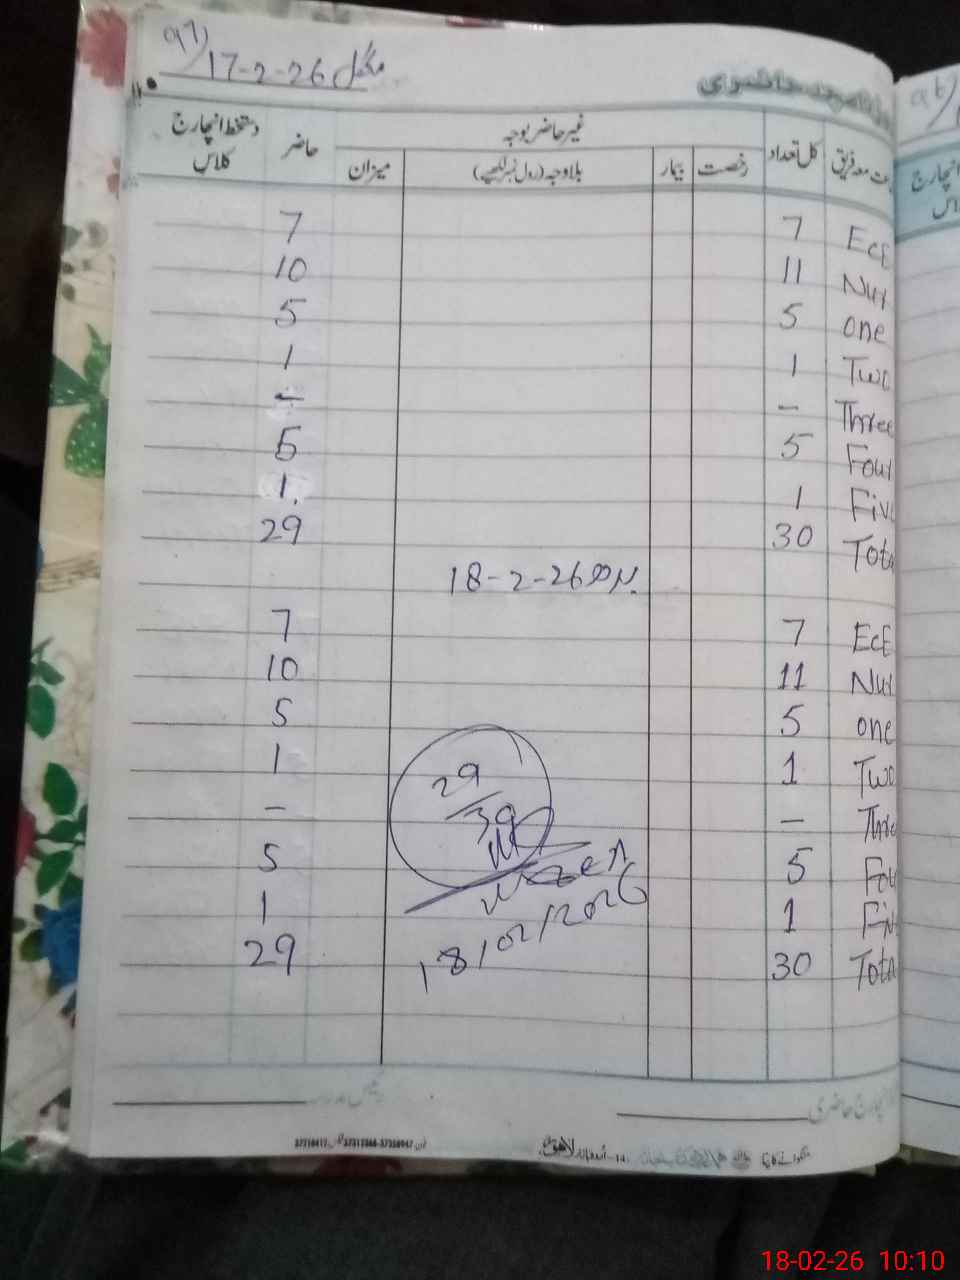 97/ 17-2-26 منگل
کل تعداد رخصت بیمار غیر حاضر بوجہ حاضر دستخط انچارج کلاس
بلاوجہ (رول نمبر لکھیے) میزان
ECE 7 7
Nur 11 10
one 5 5
Two 1 1
Three – –
Four 5 5
Five 1 1
Total 30 29
18-2-26 بدھ
ECE 7 7
Nur 11 10
one 5 5
Two 1 1
Three – –
Four 5 5
Five 1 1
Total 30 29
29
18/02/2026
انچارج حاضری
18-02-26 10:10